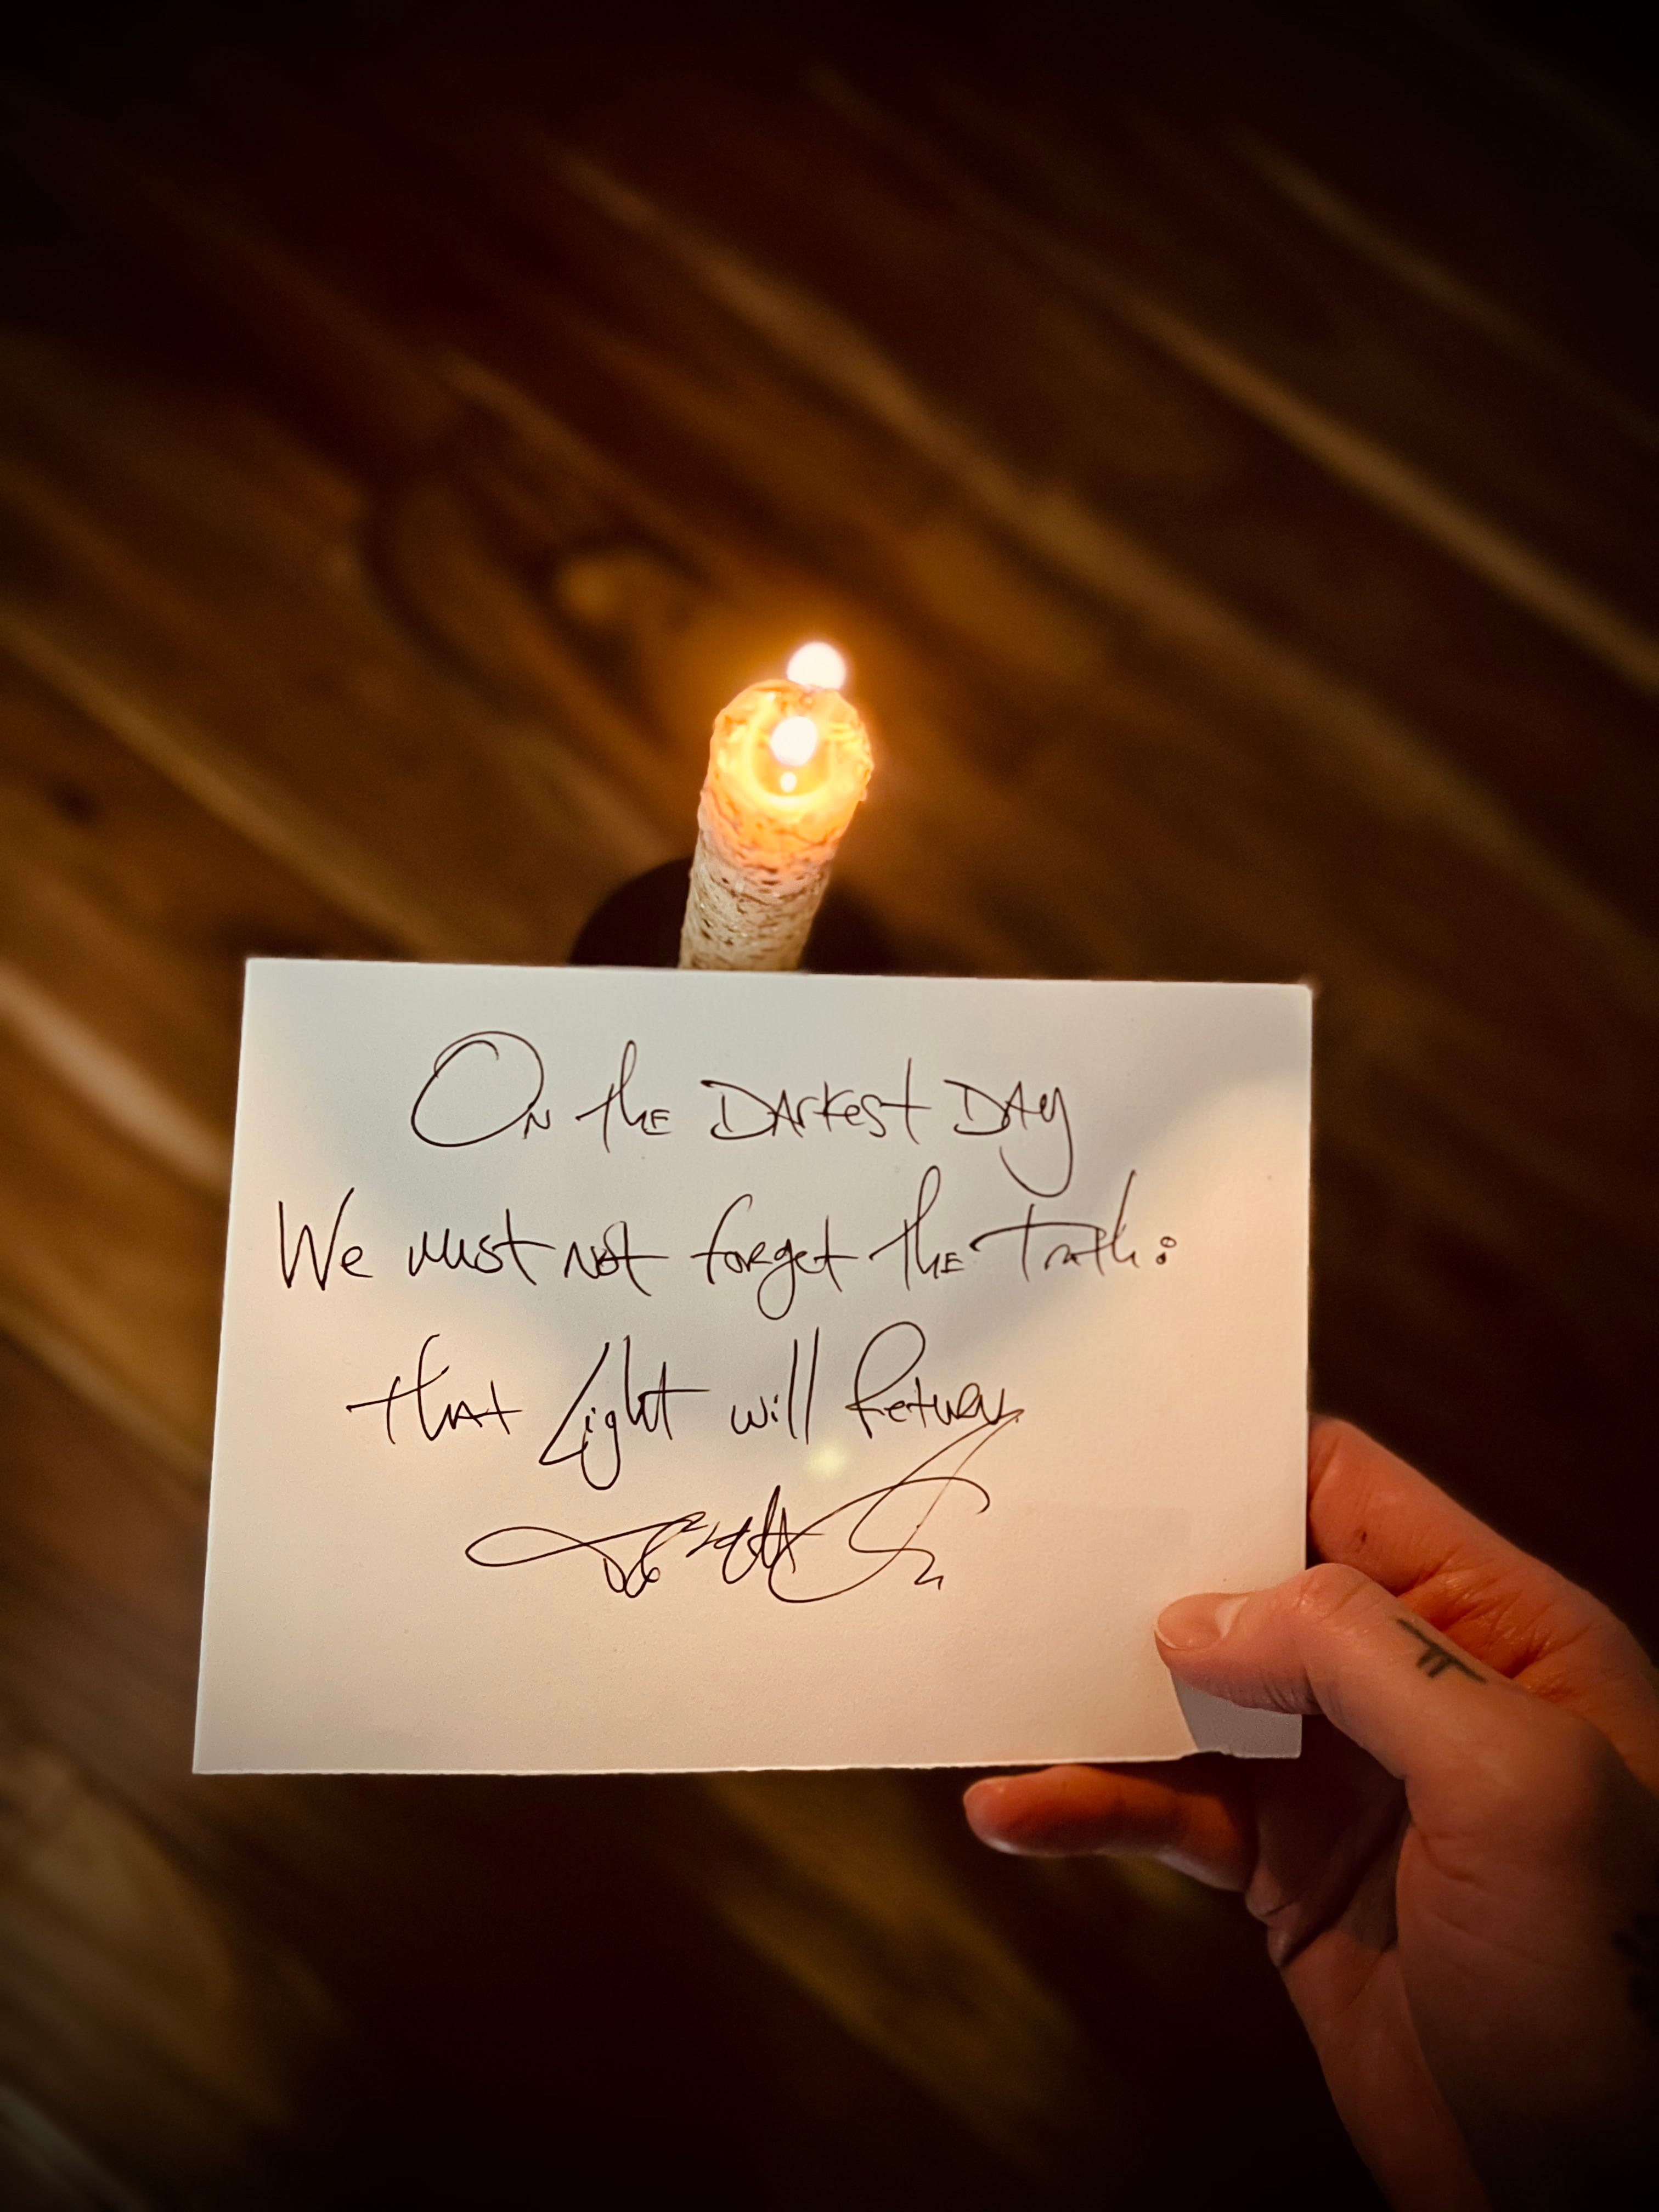 On the Darkest Day
We must not forget the Truth:
that Light will Return